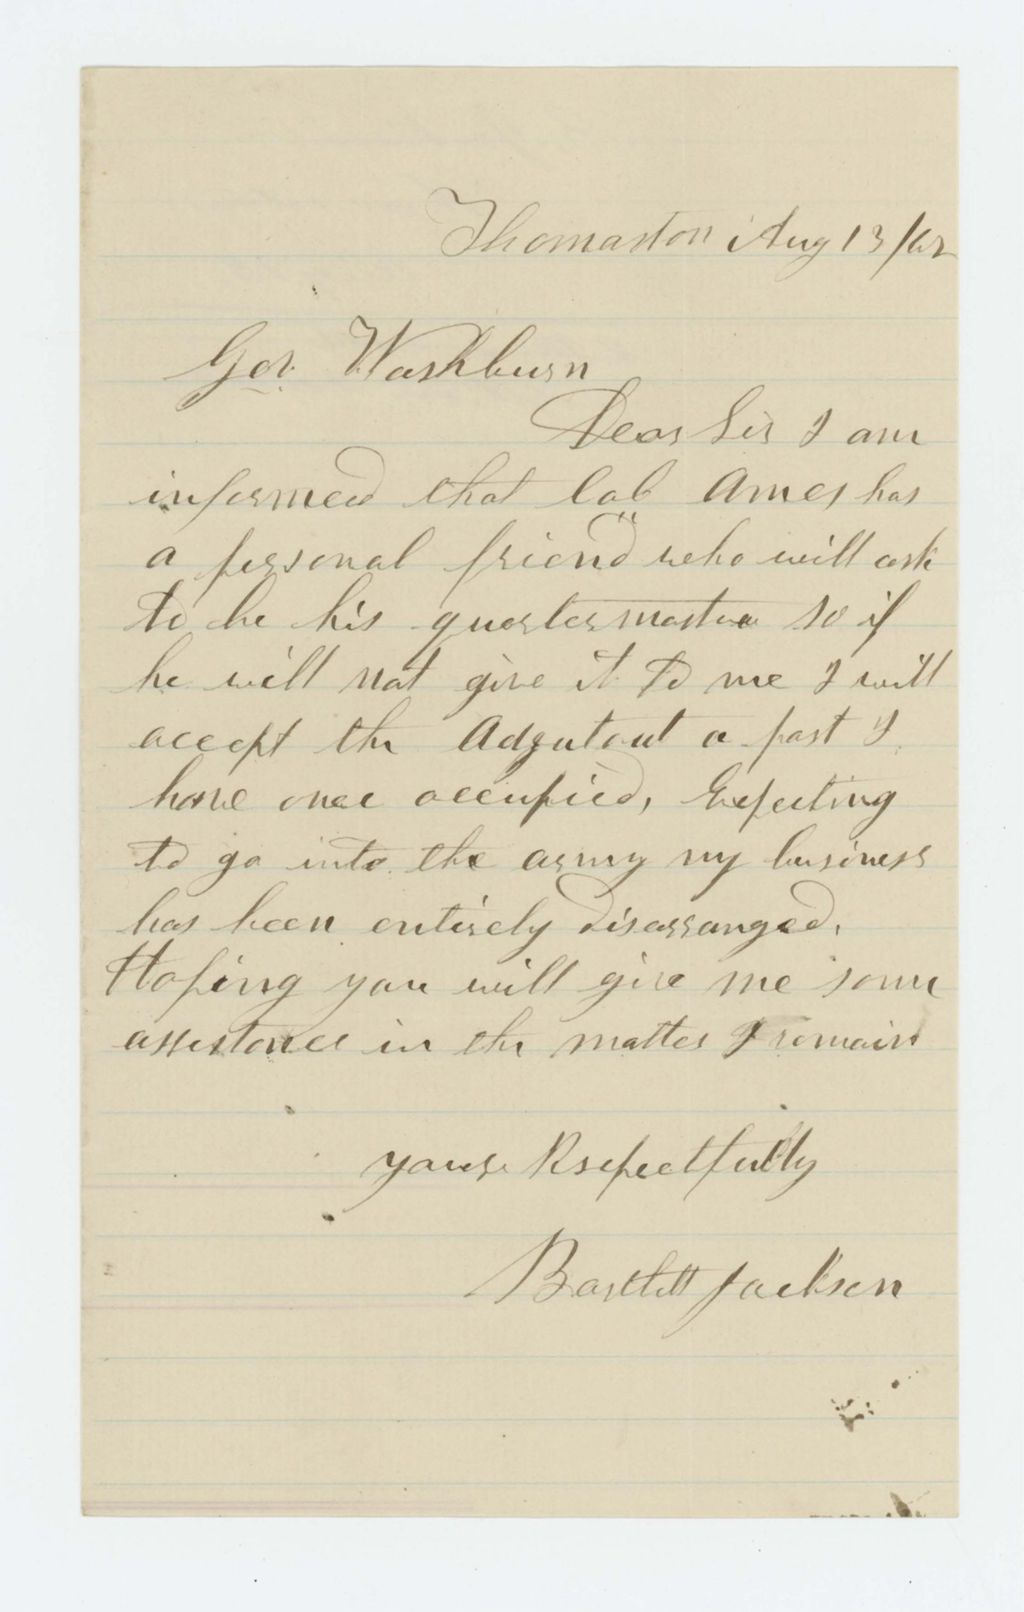 Thomaston Aug 13/62
Gov. Washburn
Dear Sir I am
informed that Col Ames has
a personal friend who will ask
to be his quartermaster so if
he will not give it to me I will
accept the Adgutant a post I
have once occupied, Expecting
to go into the army my business
has been entirely disarranged.
Hoping you will give me some
assistance in the matter I remain
yours Respectfully
Bartlett Jackson